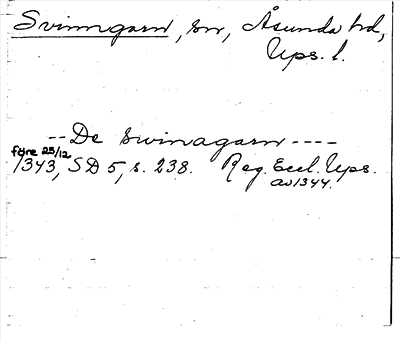 Svinngarn, sn, Åsunda hd,
Ups. l.
-- De swinagarn ----
före 25/12
1343, SD 5, s. 238. Reg. Eccl. Ups.
av 1344.